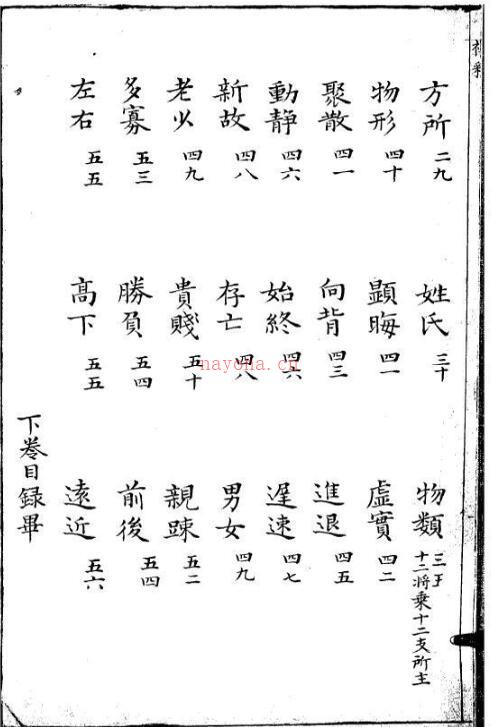 方所 二九 姓氏 三十 物類 三五 十二將乘十二支所主
物形 四十 顯晦 四一 虛實 四二
聚散 四一 向背 四三 進退 四五
動静 四六 始終 四六 遲速 四七
新故 四八 存亡 四八 男女 四九
老少 四九 貴賤 五十 親踈 五二
多寡 五三 勝負 五四 前後 五四
左右 五五 髙下 五五 遠近 五六
下卷目録畢
nayona.cn